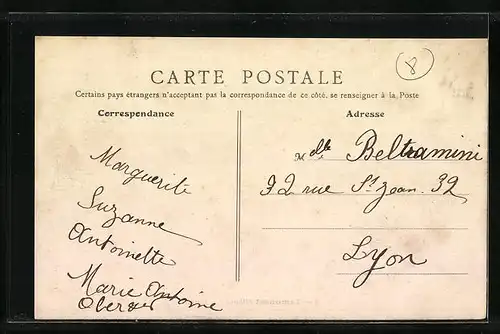 8
CARTE POSTALE
Certains pays étrangers n'acceptant pas la correspondance de ce côté, se renseigner à la Poste
Correspondance
Marguerite
Suzanne
Antoinette
Marie Antoine
Adresse
Mdlle Beltramini
32 rue St Jean. 32
Lyon